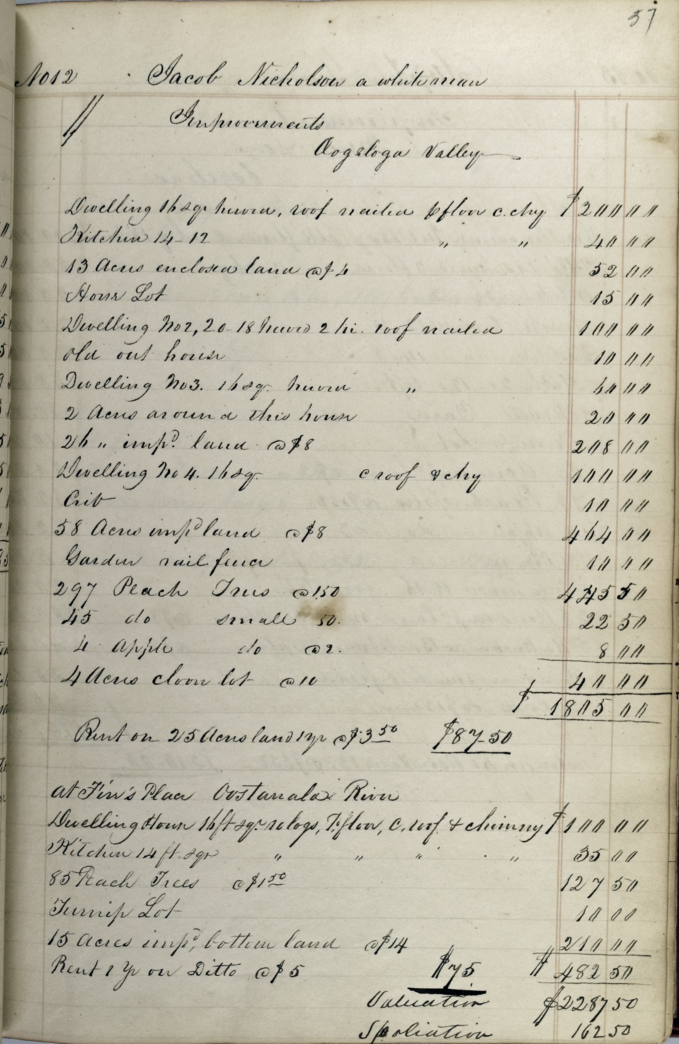 37
No 12 Jacob Nicholson a white man
Improvements
Oogeloga Valley
Dwelling 16 sqr hewed, roof nailed p floor c. chy $ 200 00
Kitchen 14-12 " " 40 00
13 Acres enclosed land @ $4 52 00
House Lot 15 00
Dwelling No 2, 20-18 hewed 2 hi. roof nailed 100 00
old out house 10 00
Dwelling No 3. 16 sqr. hewed " 60 00
2 Acres around this house 20 00
26 " impd. land @ $8 208 00
Dwelling No 4. 16 sqr. c roof & chy 100 00
Crib 10 00
58 Acres impd land @ $8 464 00
Garden rail fence 10 00
297 Peach Trees @ 150 445 50
45 do small 50. 22 50
4 Apple do @ 2. 8 00
4 Acres clover lot @ 10 40 00
$ 1805 00
Rent on 25 Acres land 1 yr @ $3 50 $87 50
at Finn's Place Oostanala River
Dwelling House 16 ft sqr ro logs, P. floor, C. roof & chimny $ 100 00
Kitchen 14 ft. sqr " " " " 35 00
85 Peach Trees @ $1 50 127 50
Turnip Lot 10 00
15 Acres impd, bottom land @ $14 210 00
Rent 1 Yr on Ditto @ $5 $75 $ 482 50
Valuation $2287 50
Spoliation 162 50